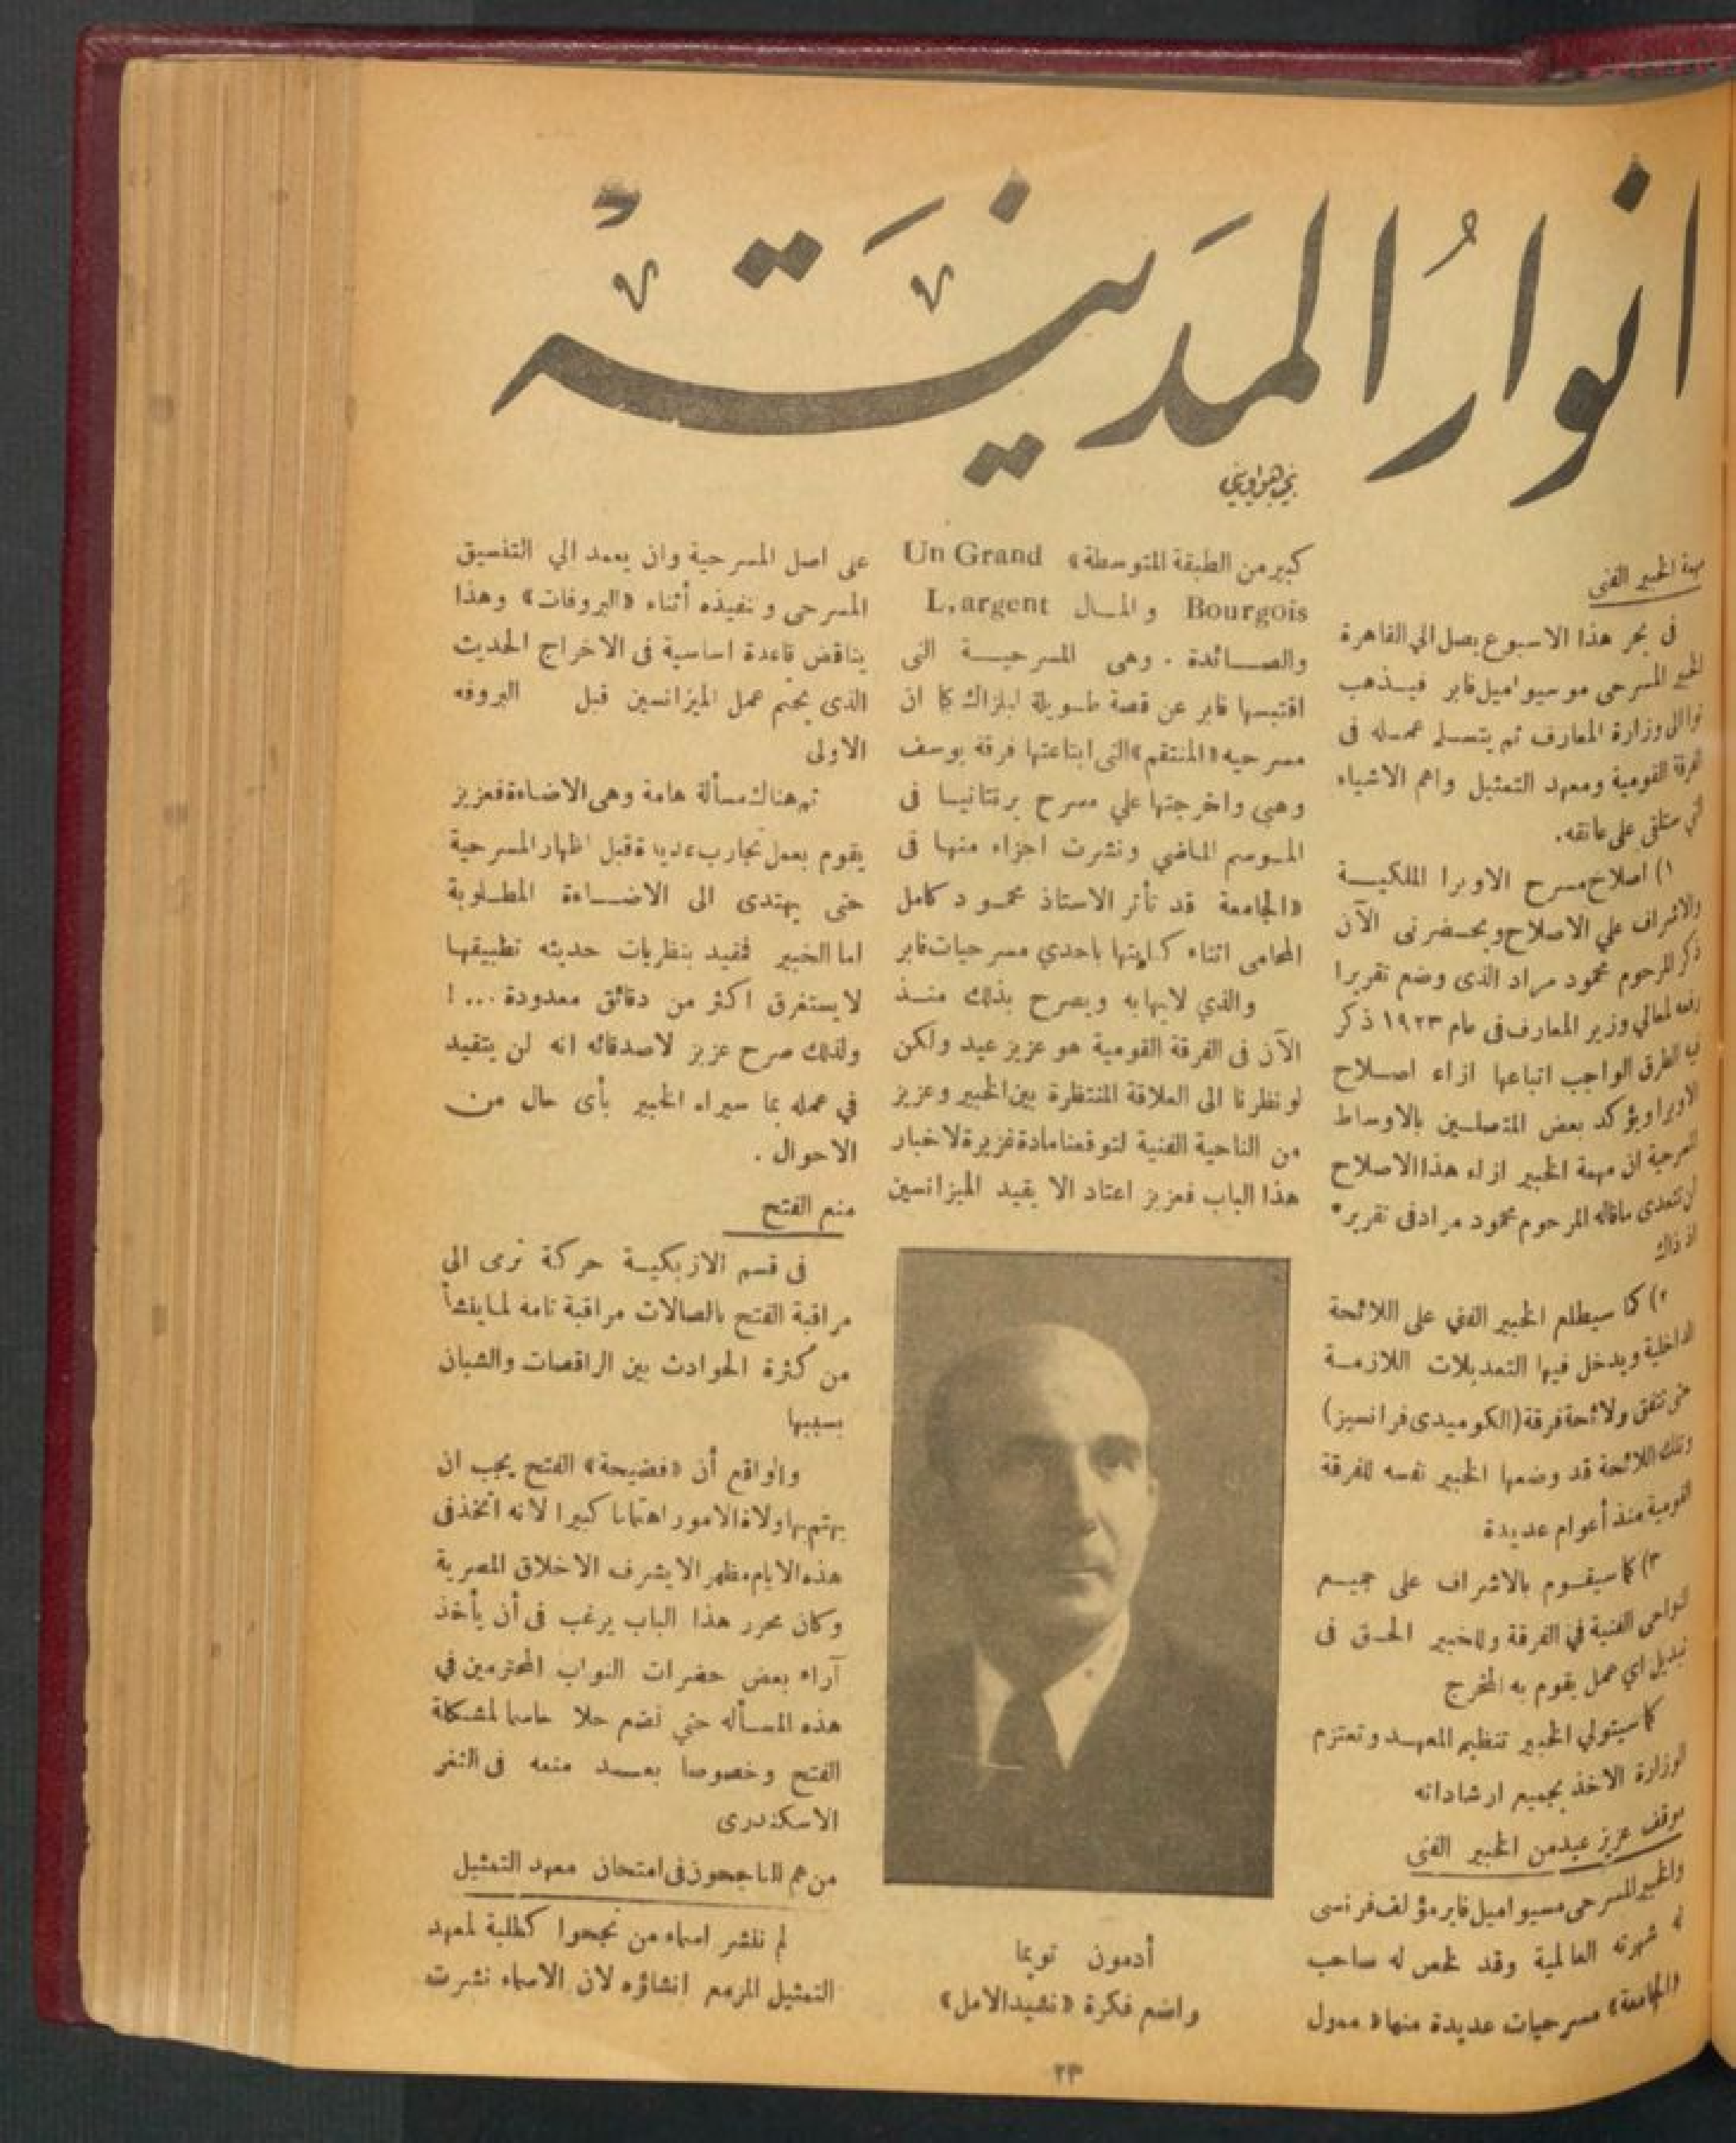 انوارُ المَدينَة
مهمة الخبير الفنى
فى بحر هذا الاسبوع يصل الي القاهرة
الخبير المسرحى موسيو اميل فابر فيـذهب
توا الى وزارة المعارف ثم يتسـلم عمـله فى
الفرقة القومية ومعهد التمثيل واهم الاشياء
التي ستلقى على عاتقه.
١) اصلاح مسرح الاوبرا الملكيــة
والاشراف علي الاصلاح ويحـضرنى الآن
ذكر المرحوم محمود مراد الذى وضع تقريرا
رفعه لمعالي وزير المعارف فى عام ١٩٢٣ ذكر
فيه الطرق الواجب اتباعها ازاء اصـلاح
الاوبرا ويؤكد بعض المتصلـين بالاوساط
المسرحية ان مهمة الخبير ازاء هذا الاصلاح
لن تتعدى ماقاله المرحوم محمود مراد فى تقريره
اذ ذاك
٢) كما سيطلع الخبير الفني على اللائحة
الداخلية ويدخل فيها التعديلات اللازمـة
حتى تتفق ولائحة فرقة (الكوميدى فرانسيز)
وتلك اللائحة قد وضعها الخبير نفسه للفرقة
القومية منذ أعوام عديدة
٣) كما سيقـوم بالاشراف على جميـع
النواحى الفنية في الفرقة وللخبير الحـق فى
تبديل اي عمل يقوم به المخرج
كما سيتولي الخبير تنظيم المعهـد وتعتزم
الوزارة الاخذ بجميع ارشاداته
موقف عزيز عيد من الخبير الفنى
والخبير المسرحى مسيو اميل فابر مؤلف فرنسى
له شهرته العالمية وقد لخص له صاحب
«الجامعة» مسرحيات عديدة منها «ممول
كبير من الطبقة المتوسطة» Un Grand
Bourgois والمـال L,argent
والصـائدة . وهى المسرحيـة التى
اقتبسها فابر عن قصة طـويلة لبلزاك كما ان
مسرحيه «المنتقم» التى ابتاعتها فرقة يوسف
وهبي واخرجتها علي مسرح برنتانيـا فى
المـوسم الماضي ونشرت اجزاء منها فى
«الجامعة قد تأثر الاستاذ محمـود كامل
المحامى اثناء كـتابتها باحدي مسرحيات فابر
والذي لابهابه ويصرح بذلك منـذ
الآن فى الفرقة القومية هو عزيز عيد ولكن
لو نظرنا الى العلاقة المنتظرة بين الخبير وعزيز
من الناحية الفنية لتوقعنا مادة غزيرة لاخبار
هذا الباب فعزيز اعتاد الا يقيد الميزانسين
أدمون تويما
واضع فكرة «نشيد الامل»
على اصل المسرحية وان يعمد الي التنسيق
المسرحى وتنفيذه أثناء «البروفات» وهذا
يناقض قاعدة اساسية فى الاخراج الحديث
الذى يحتم عمل الميزانسين قبل البروفه
الاولى
ثم هناك مسألة هامة وهى الاضاءة فعزيز
يقوم بعمل تجارب عديدة قبل اظهار المسرحية
حتى يهتدى الى الاضـاءة المطـلوبة
اما الخبير فقيد بنظريات حديثه تطبيقهـا
لا يستغرق اكثر من دقائق معدودة ... !
ولذلك صرح عزيز لاصدقائه انه لن يتقيد
في عمله بما سيراه الخبير بأى حال من
الاحوال .
منع الفتح
فى قسم الازبكيـة حركة ترمى الى
مراقبة الفتح بالصالات مراقبة تامة لما ينشأ
من كثرة الحوادث بين الراقصات والشبان
بسببها
والواقع أن «فضيحة» الفتح يجب ان
يهتم بها ولاة الامور اهتماما كبيرا لانه اتخذ فى
هذه الايام مظهرا لا يشرف الاخلاق المصرية
وكان محرر هذا الباب يرغب فى أن يأخذ
آراء بعض حضرات النواب المحترمين في
هذه المسـأله حتي نضع حلا حاسما لمشكلة
الفتح وخصوصا بعــد منعه فى الثغر
الاسكندرى
من هم الناجحون فى امتحان معهد التمثيل
لم ننشر اسماء من نجحوا كطلبة لمعهد
التمثيل المزمع انشاؤه لان الاسماء نشرت
٢٣